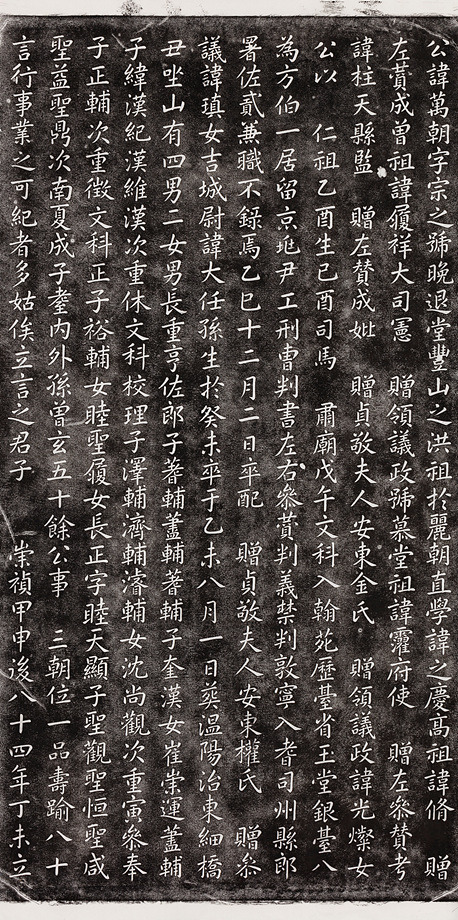 公諱萬朝字宗之號晚退堂豐山之洪祖於麗朝直學諱之慶高祖諱脩 贈
左賛成曾祖諱履祥大司憲 贈領議政號慕堂祖諱𩆸府使 贈左叅賛考
諱柱天縣監 贈左賛成妣 贈貞敬夫人安東金氏 贈領議政諱光燦女
公以 仁祖乙酉生己酉司馬 肅廟戊午文科入翰苑歷臺省玉堂銀臺八
為方伯一居留京兆尹工刑曹判書左右叅賛判義禁判敦寧入耆司州縣郎
署佐貳兼職不錄焉乙巳十二月二日卒配 贈貞敬夫人安東權氏 贈叅
議諱瑱女吉城尉諱大任孫生於癸未卒于乙未八月一日葬温陽治東細橋
丑坐山有四男二女男長重亨佐郎子蓍輔藎輔著輔子奎漢女崔崇運藎輔
子緯漢紀漢維漢次重休文科校理子澤輔濟輔濬輔女沈尚觀次重寅叅奉
子正輔次重徵文科正子裕輔女睦聖履女長正字睦天顯子聖觀聖恒聖咸
聖益聖鼎次南夏成子𡊠內外孫曾玄五十餘公事 三朝位一品壽踰八十
言行事業之可紀者多姑俟立言之君子 崇禎甲申後八十四年丁未立